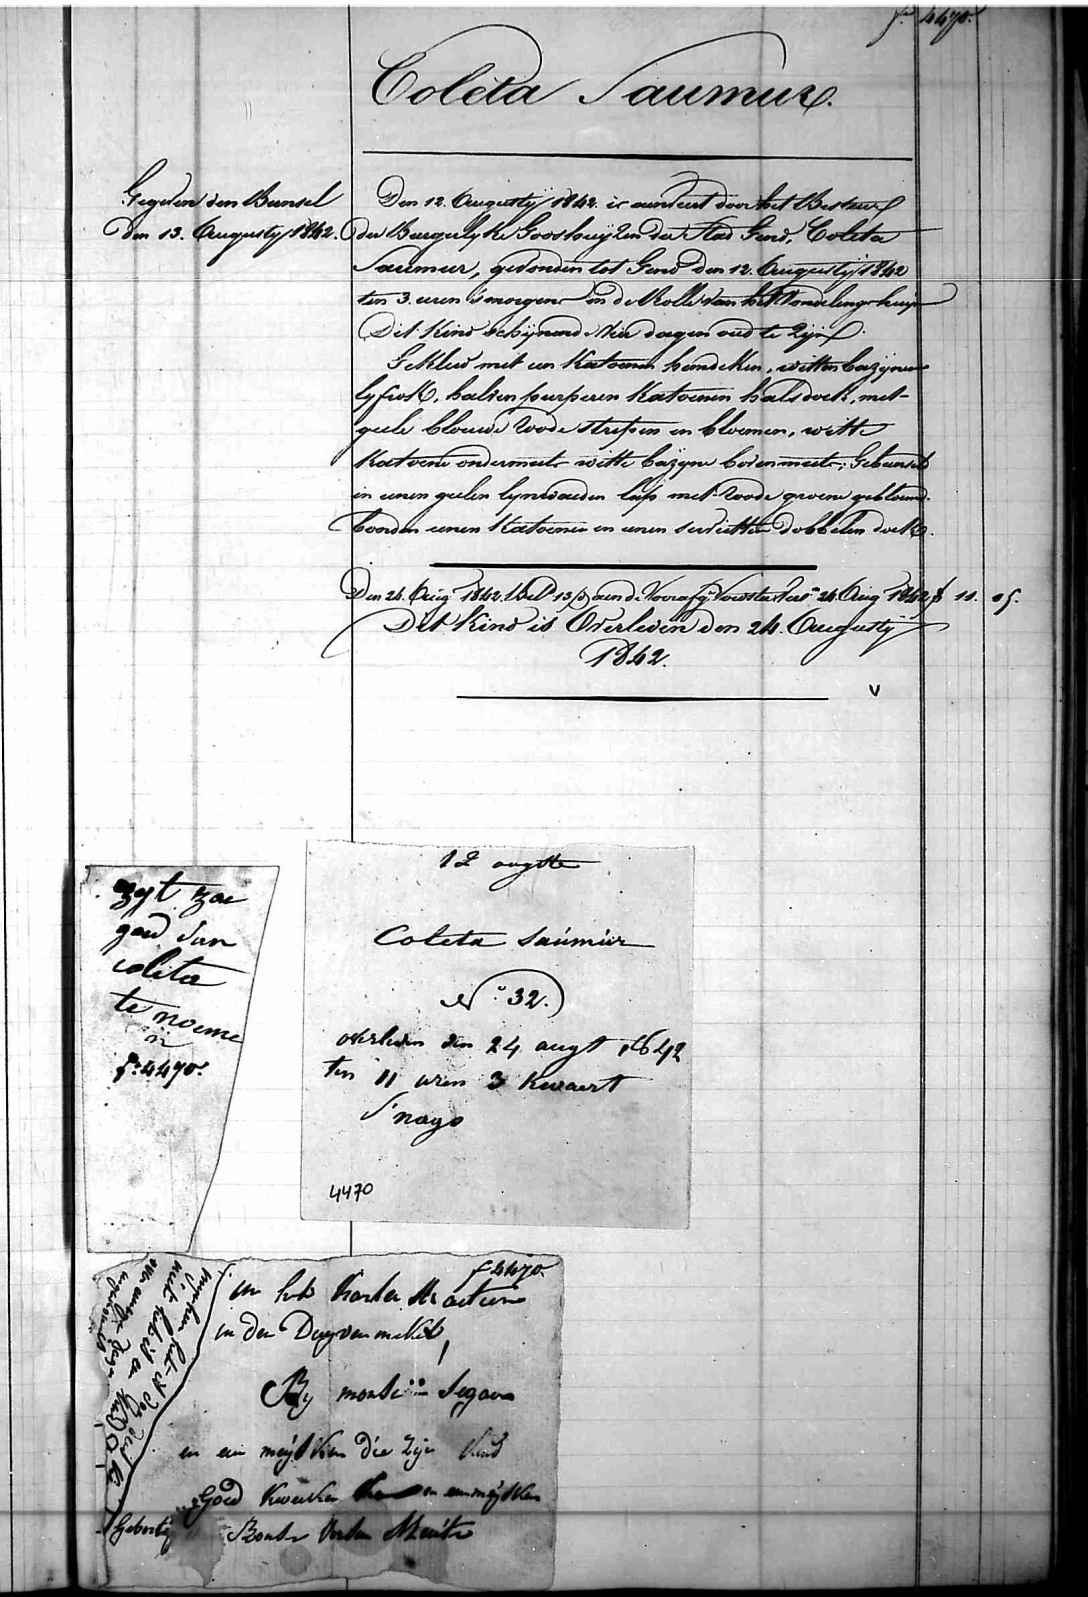 fº 4470.
Coleta Saumur.
Gegeven den Bunsel
den 13. Augusty 1842.
Den 12. Augusty 1842. is aenveert door het Bestuur
der Burgerlyke Godshuyzen der Stad Gend, Coleta
Saumur, gevonden tot Gend den 12. Augusty 1842
ten 3. uren smorgens in de Rolle van het Vondelinghuys
Dit Kind schynende vier dagen oud te zyn.
Gekleed met een Katoenen hemdeken, witten bazynen
lyfrok, halven purperen Katoenen halsdoek, met
geele blouwe roode streepen en bloemen, witte
Katoene ondermuts witte bazyne bovenmuts; Gebunseld
in eenen geelen lynwaeden lap met roode groene gebloemde
boorden eenen Katoenen en eenen servietten dobbelen doek.
Den 26. Aug 1842. 13 aen de Voorsz. 24 Aug 1842 11. 05.
Dit Kind is Overleden den 24. Augusty
1842.
V
zyt zoe
goed van
colita
te noeme
n
fº 4470.
12 augste
Coleta Saúmúr
Nº 32.
overleden den 24 augt 1842
ten 11 uren 3 kwaert
S'nags
4470
fº 4470.
in den
By
en een meysken die zyn kind
Goed en een meysken